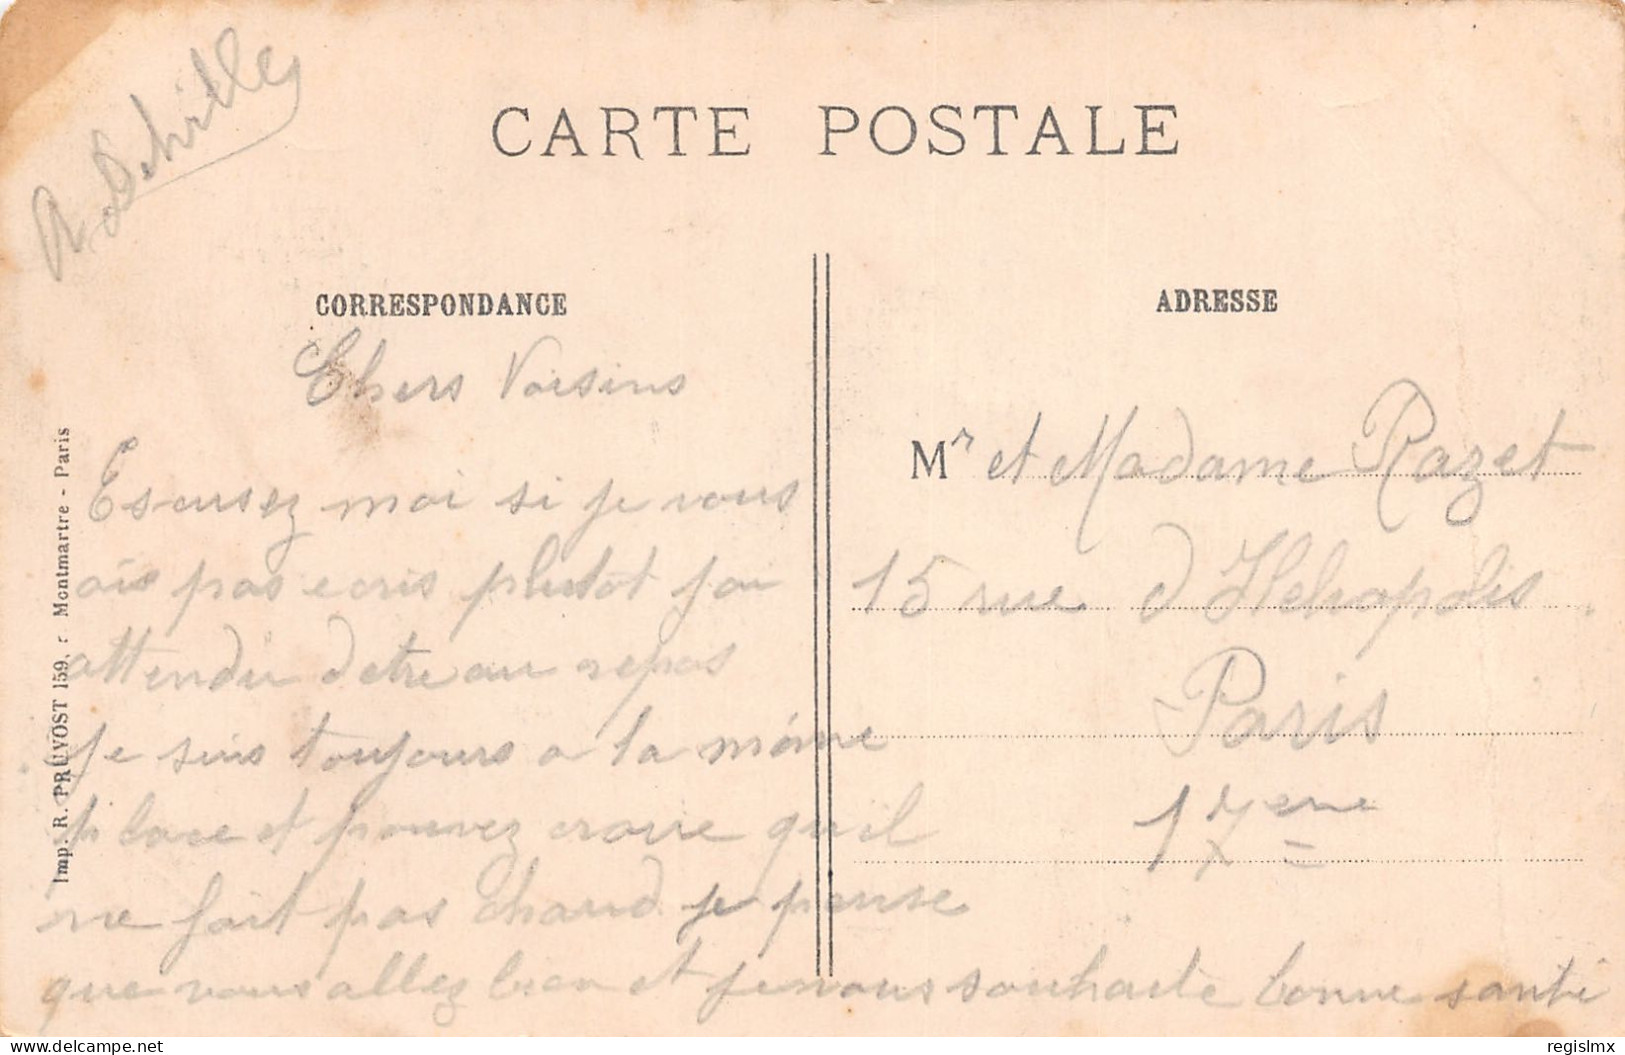 CARTE POSTALE
CORRESPONDANCE
Chers Voisins
Escusez moi si je vous
ais pas ecris plutot jai
attendu detre au repos
je suis toujours a la même
place et pouvez croire quil
ne fait pas chaud je pense
que vous allez bien et je vous souhaite bonne santé
ADRESSE
Mr et Madame Razet
15 rue d'Heliopolis
Paris
17eme
Imp. R. PRUVOST 159, r Montmartre - Paris
delcampe.net
regislmx